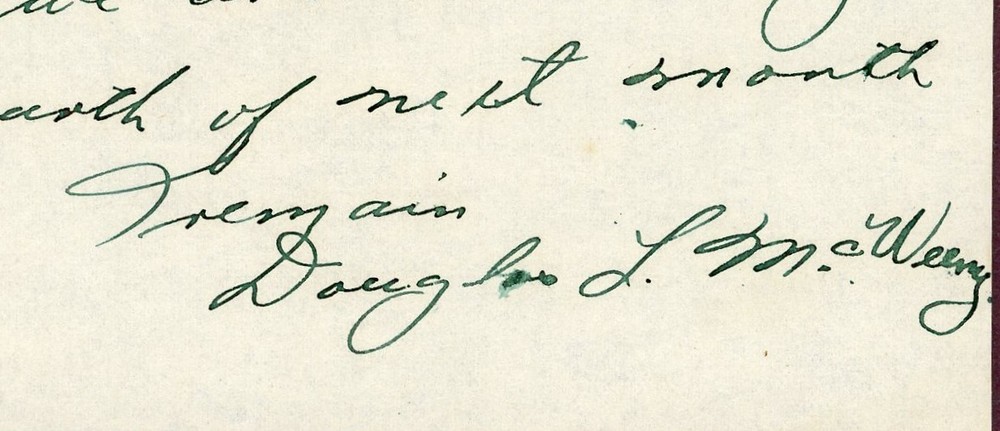 of next month
I remain
Douglas L. McWeeny.